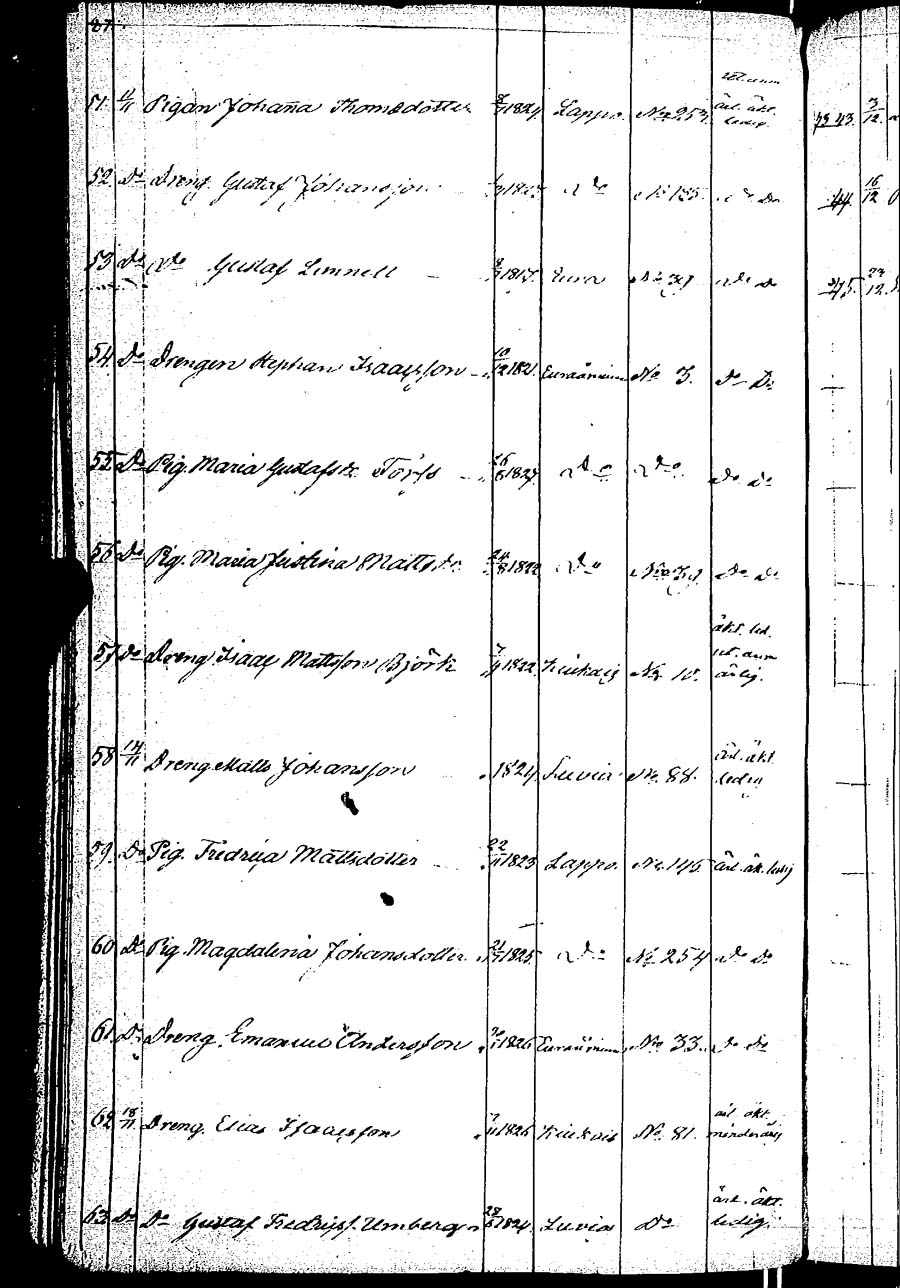 27.
51. 11/11 Pigan Johanna Thomsdotter 1824 Lappo. No 253. ärl. äkt. ledig.
43 3/12
52 Do Dreng. Gustaf Johansson Do No 185. Do Do
44 16/12
53 Do Do Gustaf Linnell 1817. Eura No 39 Do Do
45. 23/12
54. Do Drengen Stephan Isaacsson 10/12 182 Euraåminne No 3. Do Do
55 Do Pig. Maria Gustafsdr Törfs 1827 Do Do Do Do
56 Do Pig. Maria Justina Mattsdr 24/8 1822 Do No 39 Do Do
57 Do Dreng Isaac Mattsson Björk 1822 Kiukais No 10. äkt. led. ärlig.
58 14/11 Dreng Matts Johansson 1824 Luvia No. 88. ärl. äkt. ledig
59. Do Pig. Fredrica Mattsdotter 22/11 1823 Lappo. No. 146 ärl. äk. ledig
60 Do Pig. Magdalena Johansdotter 21 1825 Do No 254 Do Do
61. Do Dreng. Emanuel Andersson 1826 Euraåminne No 33. Do Do
62 18/11 Dreng. Elias Isaacsson 1826 Kiukais No. 81. ärl. äkt. minderårig
63 Do Do Gustaf Fredrikss. Umberg 28 1824. Luvia Do ärl. äkt. ledig.